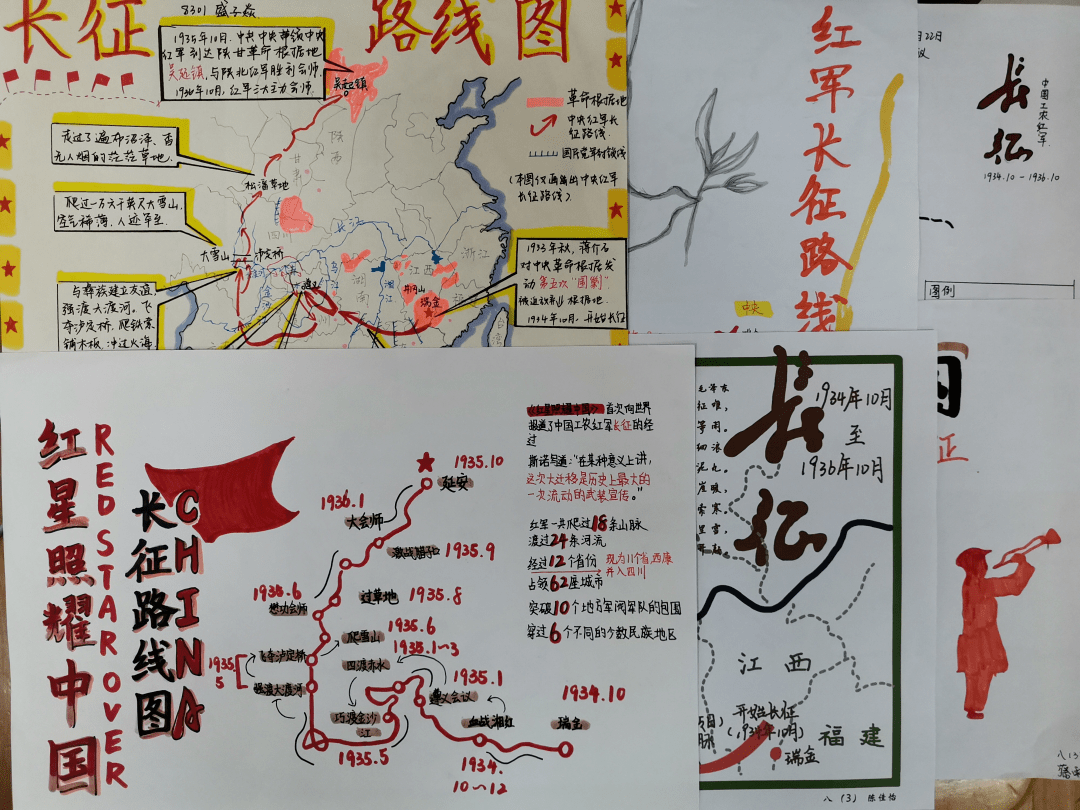 长征 路线图
8301 盛子焱
1935年10月,中共中央率领中央
红军到达陕甘革命根据地
吴起镇,与陕北红军胜利会师.
1936年10月,红军三大主力会师.
吴起镇
革命根据地
中央红军长
征路线.
国民党军封锁线
(本图仅画出中央红军
长征路线)
走过了遍布沼泽,荒
无人烟的茫茫草地.
松潘草地
陕西
甘肃
爬过一万六千英尺大雪山,
空气稀薄,人迹罕至.
大雪山
泸定桥
四川
长江
浙江
江西
湖南
湘江
井冈山
瑞金
遵义
台湾
1933年秋,蒋介石
对中央革命根据发
动第五次"围剿".
被迫放弃山根据地.
1934年10月,开始长征
与彝族建立友谊,
强渡大渡河.飞
夺泸定桥,爬铁索
铺木板,冲过火海
红军长征路线
长征
中国工农红军
1934.10-1936.10
图例
红星照耀中国
RED STAR OVER
CHINA
长征路线图
《红星照耀中国》首次向世界
报道了中国工农红军长征的经
过
斯诺写道:"在某种意义上讲,
这次大迁移是历史上最大的
一次流动的武装宣传。"
红军一共爬过18条山脉
渡过24条河流
经过12个省份 现为11个省,西康
并入四川
占领62座城市
突破10个地方军阀军队的包围
穿过6个不同的少数民族地区
1935.10
延安
1936.1
大会师
激战腊子口 1935.9
过草地 1935.8
1935.6
懋功会师
爬雪山 1935.6
飞夺泸定桥
1935.5
强渡大渡河
四渡赤水 1935.1~3
巧渡金沙江
1935.5
遵义会议 1935.1
血战湘江
1934.10~12
瑞金 1934.10
毛泽东
征难,
等闲。
细浪
泥丸。
崖暖,
索寒。
里雪,
长征
1934年10月
至
1936年10月
江西
福建
开始长征
(1934年10月)
瑞金
八(3) 陈佳怡